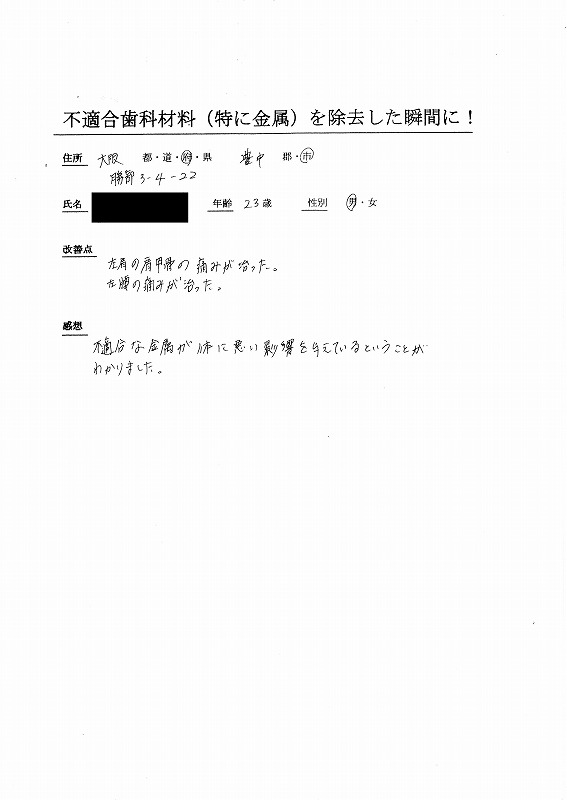 不適合歯科材料（特に金属）を除去した瞬間に！
住所 大阪 都・道・府・県 豊中 郡・市
勝部3-4-22
氏名 年齢 23歳 性別 男・女
改善点
左肩の肩甲骨の痛みが治った。
左腰の痛みが治った。
感想
不適合な金属が体に悪い影響を与えているということが
わかりました。